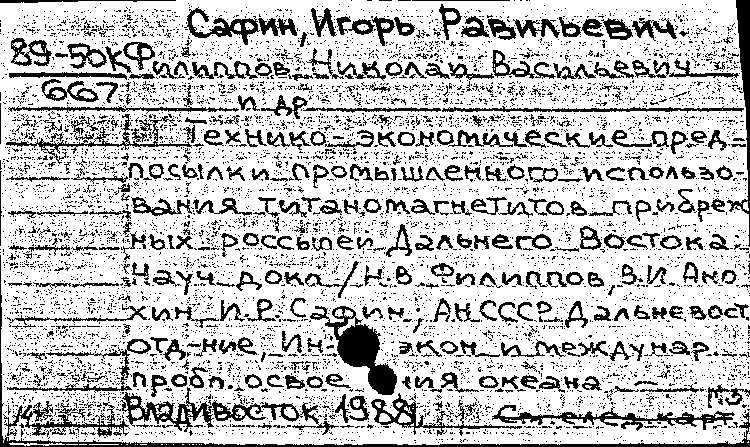 Сафин, Игорь Равильевич.
89-50К Филиппов, Николай Васильевич
667 и др
Технико-экономические пред-
посылки промышленного использо-
вания титаномагнетитов прибреж
ных россыпей Дальнего Востока:
Науч. докл / Н.В Филиппов, В.И. Ано
хин И.Р. Сафин; АН СССР Дальневост
отд-ние, Ин-т экон и междунар.
пробл. освоения океана —
Владивосток, 1988,
См. след. карт